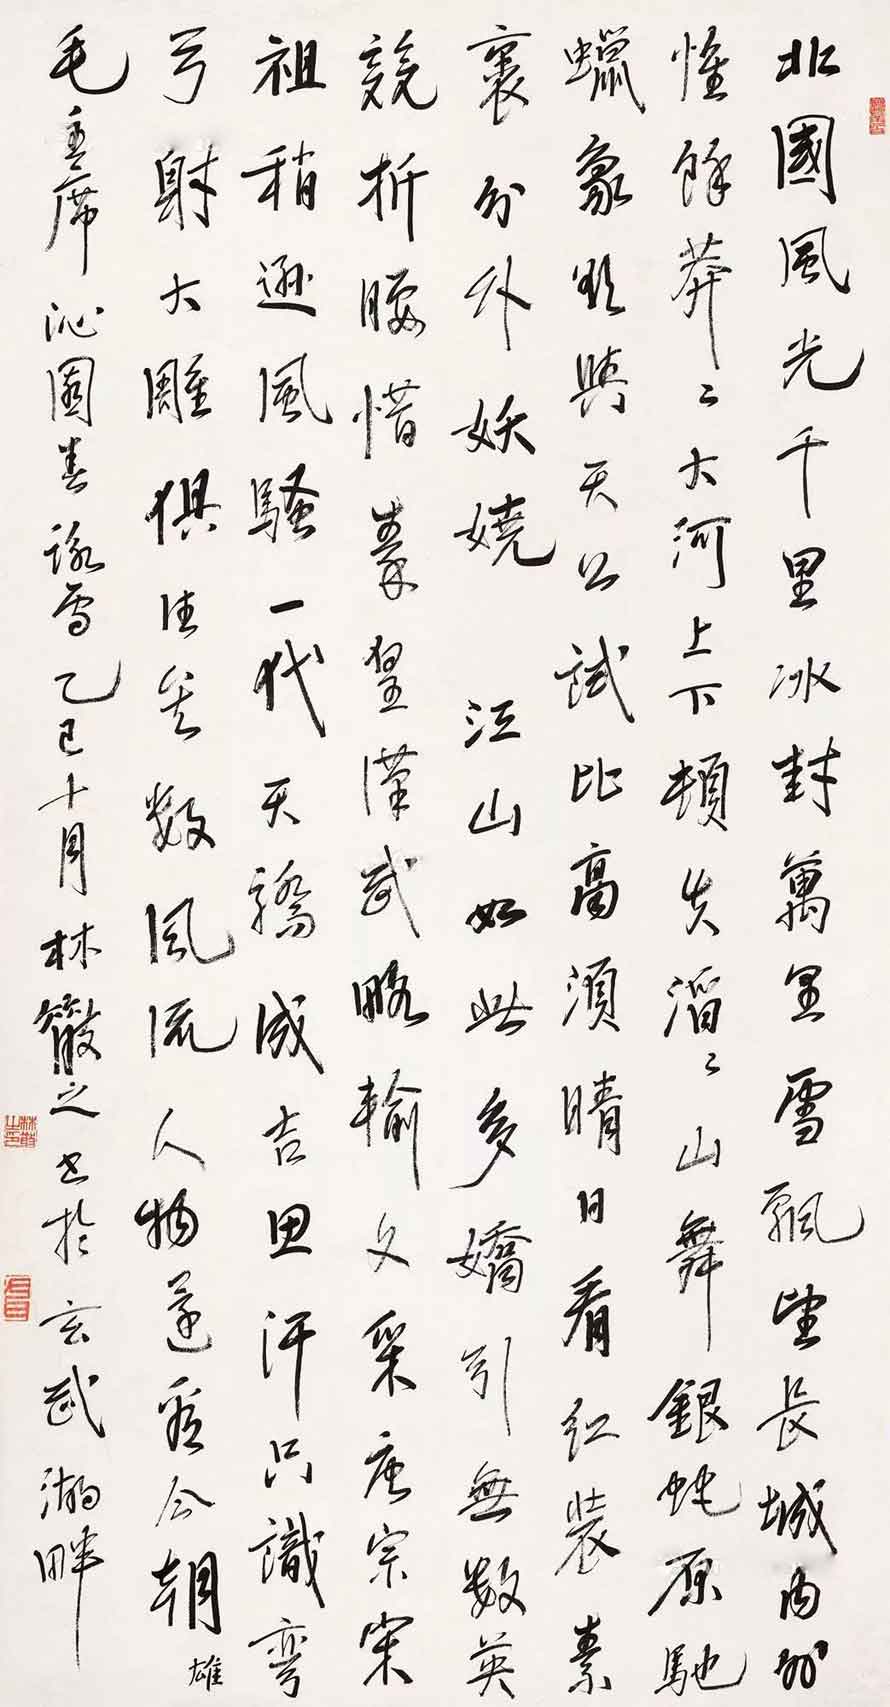 北國風光千里冰封萬里雪飄望長城內外
惟餘莽〻大河上下頓失滔〻山舞銀蛇原馳
蠟象欲與天公試比高須晴日看紅裝素
裹分外妖嬈 江山如此多嬌引無數英
競折腰惜秦皇漢武略輸文采唐宗宋
祖稍遜風騷一代天驕成吉思汗只識彎
弓射大雕俱往矣數風流人物還看今朝
雄
毛主席沁園春詠雪乙巳十月林散之書於玄武湖畔
林散之印